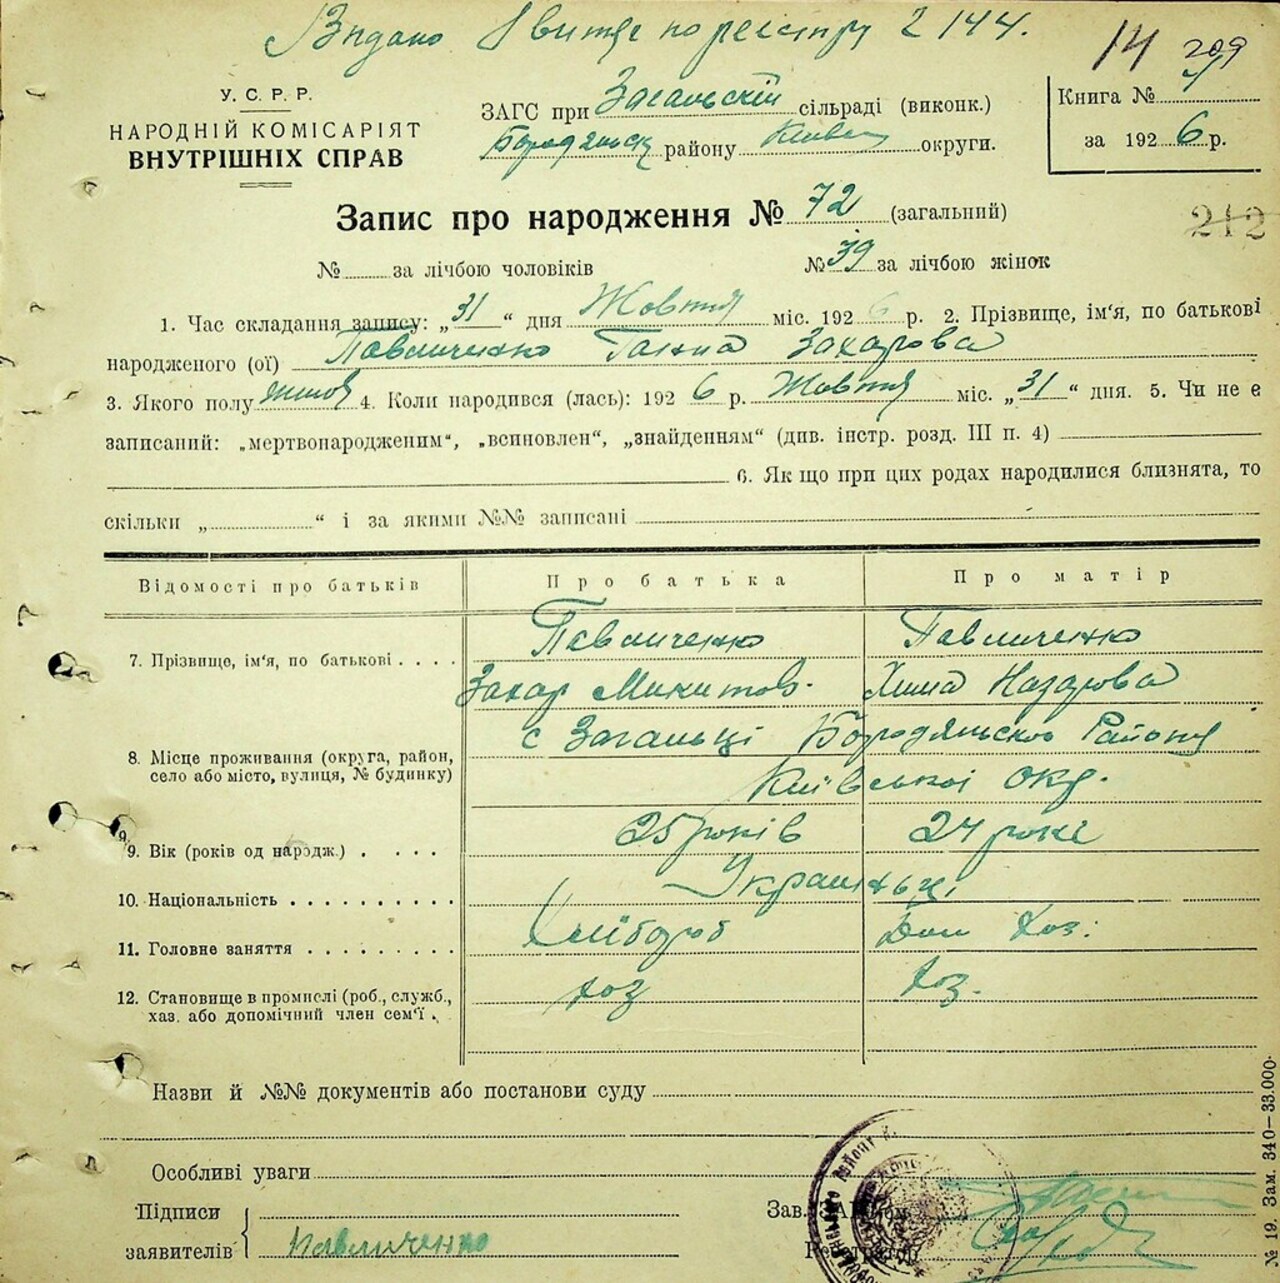 Видано витяг по реєстру 2144.
14 209
У. С. Р. Р.
НАРОДНІЙ КОМІСАРІЯТ
ВНУТРІШНІХ СПРАВ
ЗАГС при Загальській сільраді (виконк.)
Бородянськ району Києвс округи.
Книга №
за 1926 р.
Запис про народження № 72 (загальний)
212
№ за лічбою чоловіків № 39 за лічбою жінок
1. Час складання запису: „31“ дня Жовтня міс. 1926 р. 2. Прізвище, ім'я, по батькові
народженого (ої) Павличенко Ганна Захарова
3. Якого полу жіноч 4. Коли народився (лась): 1926 р. Жовтня міс. „31“ дня. 5. Чи не є
записаний: „мертвонародженим“, „всиновлен“, „знайденням“ (див. інстр. розд. III п. 4)
6. Як що при цих родах народилися близнята, то
скільки „ “ і за якими №№ записані
Відомості про батьків Про батька Про матір
7. Прізвище, ім'я, по батькові . . . . Павличенко Павличенко
Захар Микитов. Химa Назарова
8. Місце проживання (округа, район, село або місто, вулиця, № будинку) с Загальці Бородянського Району
Київської окр.
9.
9. Вік (років од народж.) . . . . 25 років 24 роки
10. Національність . . . . . . . . . . Українці
11. Головне заняття . . . . . . . . . Хлібороб Дом Хоз.
12. Становище в промислі (роб., служб., хаз. або допомічний член сем'ї . хоз хоз.
Назви й №№ документів або постанови суду
Особливі уваги
Підписи
заявителів Павличенко
Зав. ЗАГСом
Реєстратор
№ 19. Зам. 340—33.000.